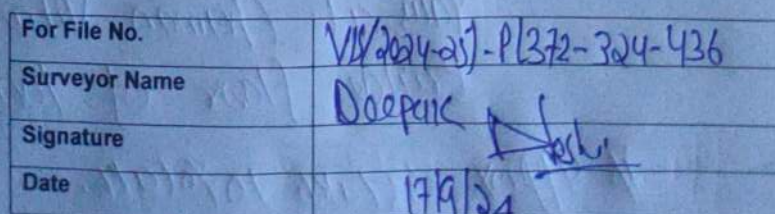 For File No. VIS/2024-25)-PL372-324-436
Surveyor Name Deepak
Signature Joshi
Date 17/9/24